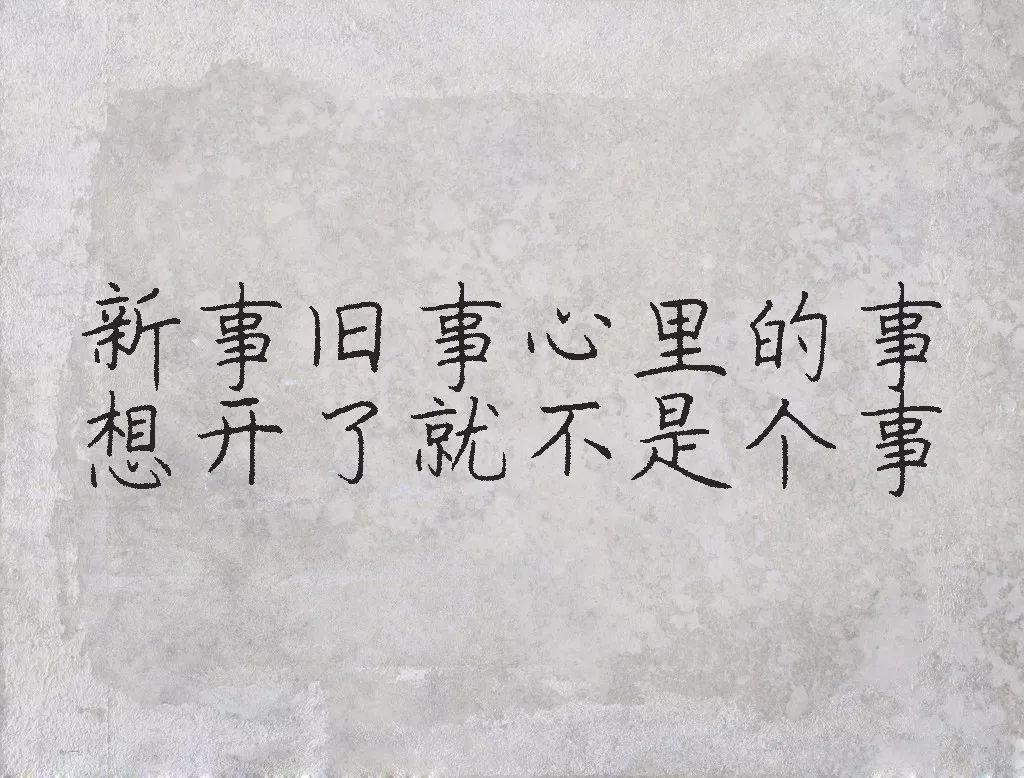 新事旧事心里的事
想开了就不是个事